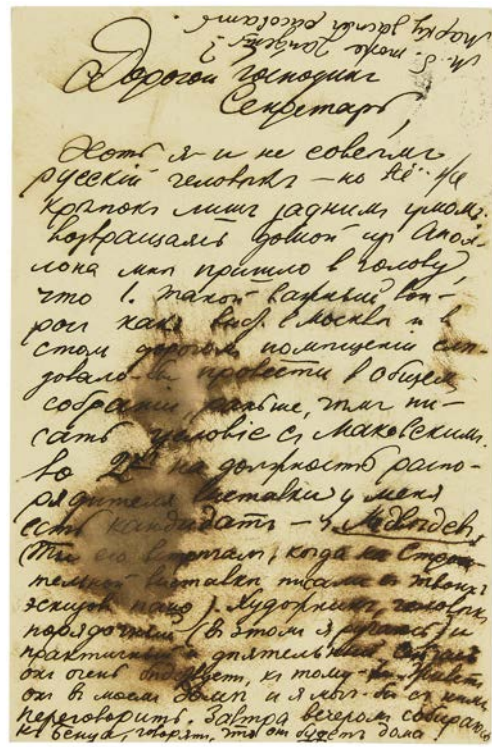 Дорогой господинъ
Секретарь,
Хоть я и не совсѣмъ
русскій человѣкъ — но
крѣпокъ лишь заднимъ умомъ.
возвращаясь домой изъ Апол-
лона мнѣ пришло в голову,
что 1. такой важный воп-
росъ какъ выст. в Москвѣ и в
столь дорогомъ помѣщеніи слѣ-
довало-бы провести в общем
собраніи, раньше, чѣмъ пи-
сать условіе съ Маковскимъ.
Во 2ыхъ на должность распо-
рядителя выставки у меня
есть кандидатъ —
(Ты его встрѣчалъ, когда на Строи-
тельной выставкѣ писали съ твоихъ
эскизовъ панно). Художникъ, человѣкъ
порядочный (в этомъ я ручаюсь) и
практичный и дѣятельный. Сейчасъ
онъ очень бѣдствуетъ, къ тому-же живетъ
онъ в моемъ домѣ и я могъ-бы съ нимъ
переговорить. Завтра вечеромъ собираюсь
къ Бенуа, говорятъ, что он будетъ дома